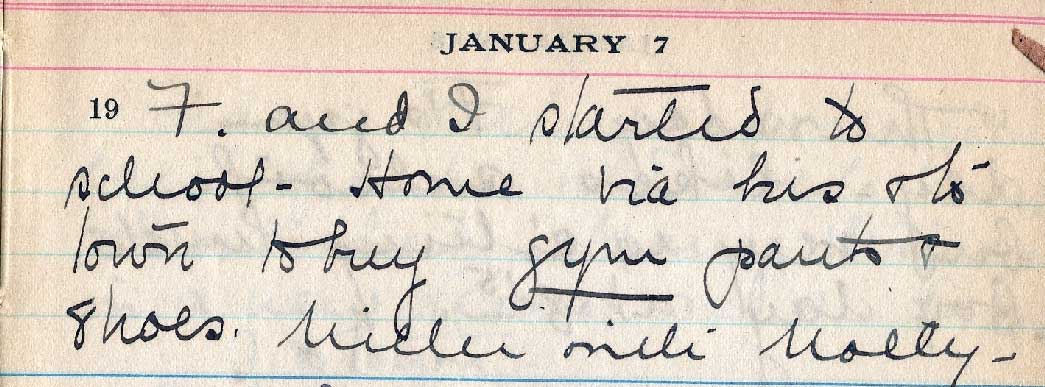 JANUARY 7
19 F. and I started to
school - Home via bus & to
town to buy gym pants &
shoes.